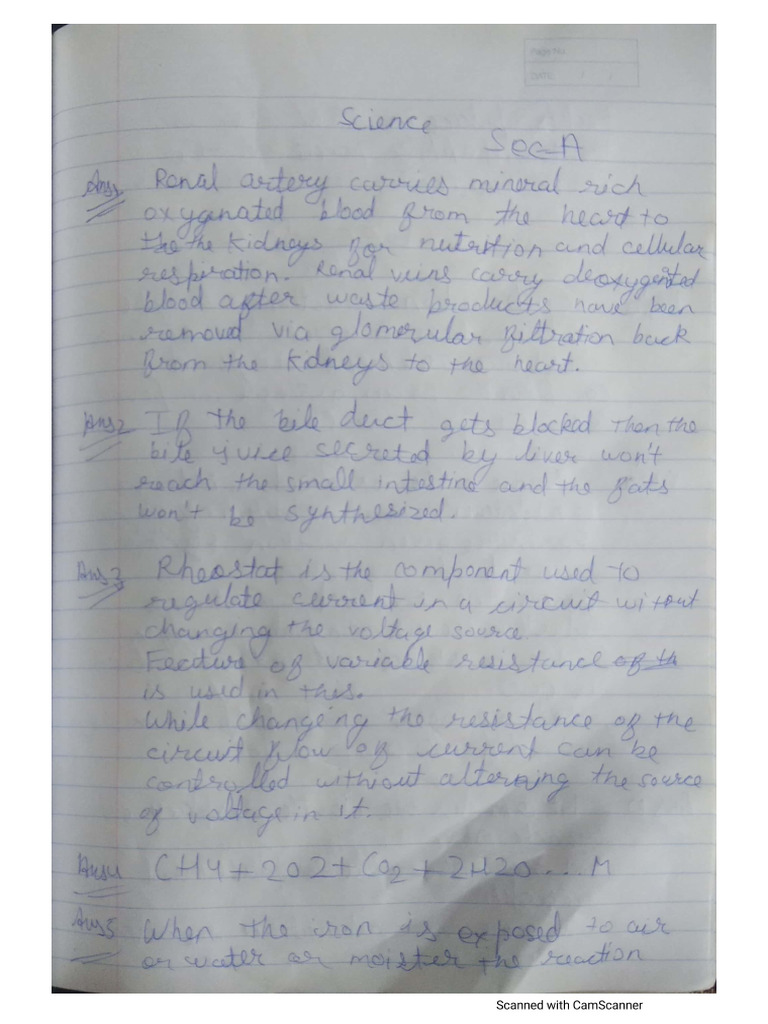 Page No.
DATE
Science
Sec-A
Ans1 Renal artery carries mineral rich
oxygenated blood from the heart to
the the kidneys for nutrition and cellular
respiration. Renal veins carry deoxygented
blood after waste products have been
removed via glomerular filtration back
from the kidneys to the heart.
Ans2 If the bile duct gets blocked then the
bile juice secreted by liver won't
reach the small intestine and the fats
won't be synthesized.
Ans3 Rheostat is the component used to
regulate current in a circuit without
changing the voltage source.
Feature of variable resistance of th
is used in this.
While changing the resistance of the
circuit flow of current can be
controlled without alterning the source
of voltage in it.
Ans4 CH4 + 2O2 + CO2 + 2H2O ... M
Ans5 When the iron is exposed to air
or water or moister the reaction
Scanned with CamScanner